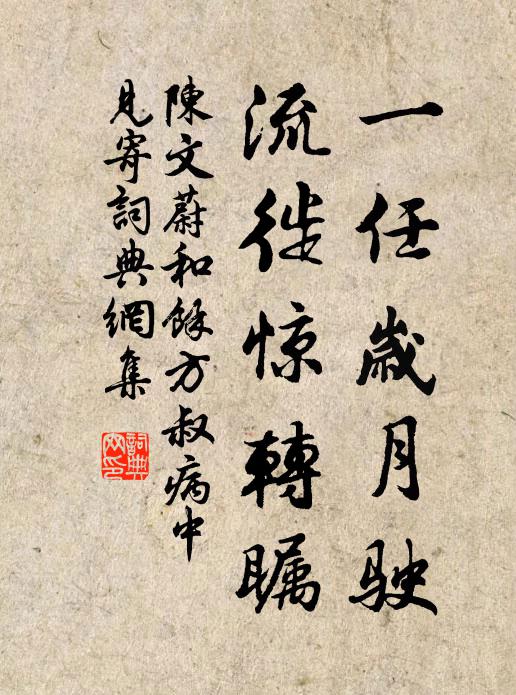 一任歲月駛
流徙惊轉瞩
陳文蔚和餘方叔病中
見寄詞典網集
詞典網印